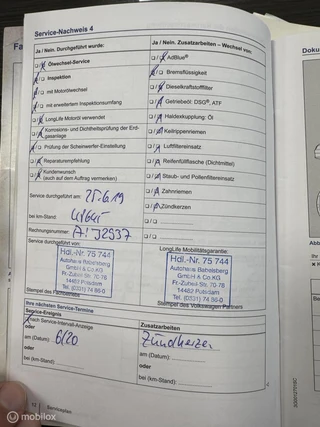 Service-Nachweis 4
Ja / Nein. Durchgeführt wurde:
Ölwechsel-Service
Inspektion
mit Motorölwechsel
mit erweitertem Inspektionsumfang
LongLife Motoröl verwendet
Korrosions- und Dichtheitsprüfung der Erd-
gasanlage
Prüfung der Scheinwerfer-Einstellung
Reparaturempfehlung
Kundenwunsch
(auch auf dem Auftrag vermerken)
Service durchgeführt am: 25.6.19
bei km-Stand:
Rechnungsnummer:
Service durchgeführt von:
Hdl.-Nr. 75 744
Autohaus Babelsberg
GmbH & Co.KG
Fr.-Zubeil Str. 70-76
14482 Potsdam
Tel. (0331) 74 86-0
Stempel des Fachbetriebs
Ja / Nein. Zusatzarbeiten – Wechsel von:
AdBlue®
Bremsflüssigkeit
Dieselkraftstofffilter
Getriebeöl: DSG®, ATF
Haldexkupplung: Öl
Keilrippenriemen
Luftfiltereinsatz
Reifenfüllflasche (Dichtmittel)
Staub- und Pollenfiltereinsatz
Zahnriemen
Zündkerzen
LongLife Mobilitätsgarantie:
Hdl.-Nr. 75 744
Autohaus Babelsberg
GmbH & Co.KG
Fr.-Zubeil Str. 70-76
14482 Potsdam
Tel. (0331) 74 86-0
Stempel des Volkswagen Partners
Ihre nächsten Service-Termine
Service-Ereignis
nach Service-Intervall-Anzeige
oder
am (Datum): 6/20
oder
bei (km-Stand):
Zusatzarbeiten
Zündkerzen
am (Datum):
oder
bei (km-Stand):
Serviceplan
mobilox